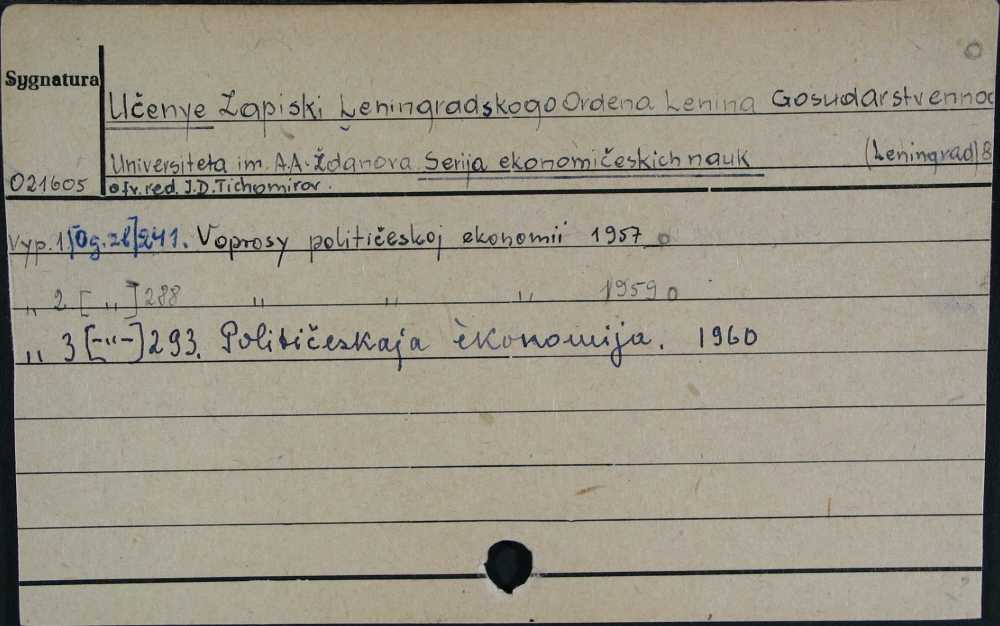 Sygnatura
Učenye Zapiski Leningradskogo Ordena Lenina Gosudarstvennoo
Universiteta im. A.A. Ždanova Serija ekonomičeskich nauk (Leningrad) 8
021605 otv. red. I.D. Tichomirov.
Vyp. 1 [Og. zb] 241. Voprosy političeskoj ekonomii 1957
„ 2 [ „ ] 288 „ „ „ 1959
„ 3 [-„-] 293. Političeskaja èkonomija. 1960